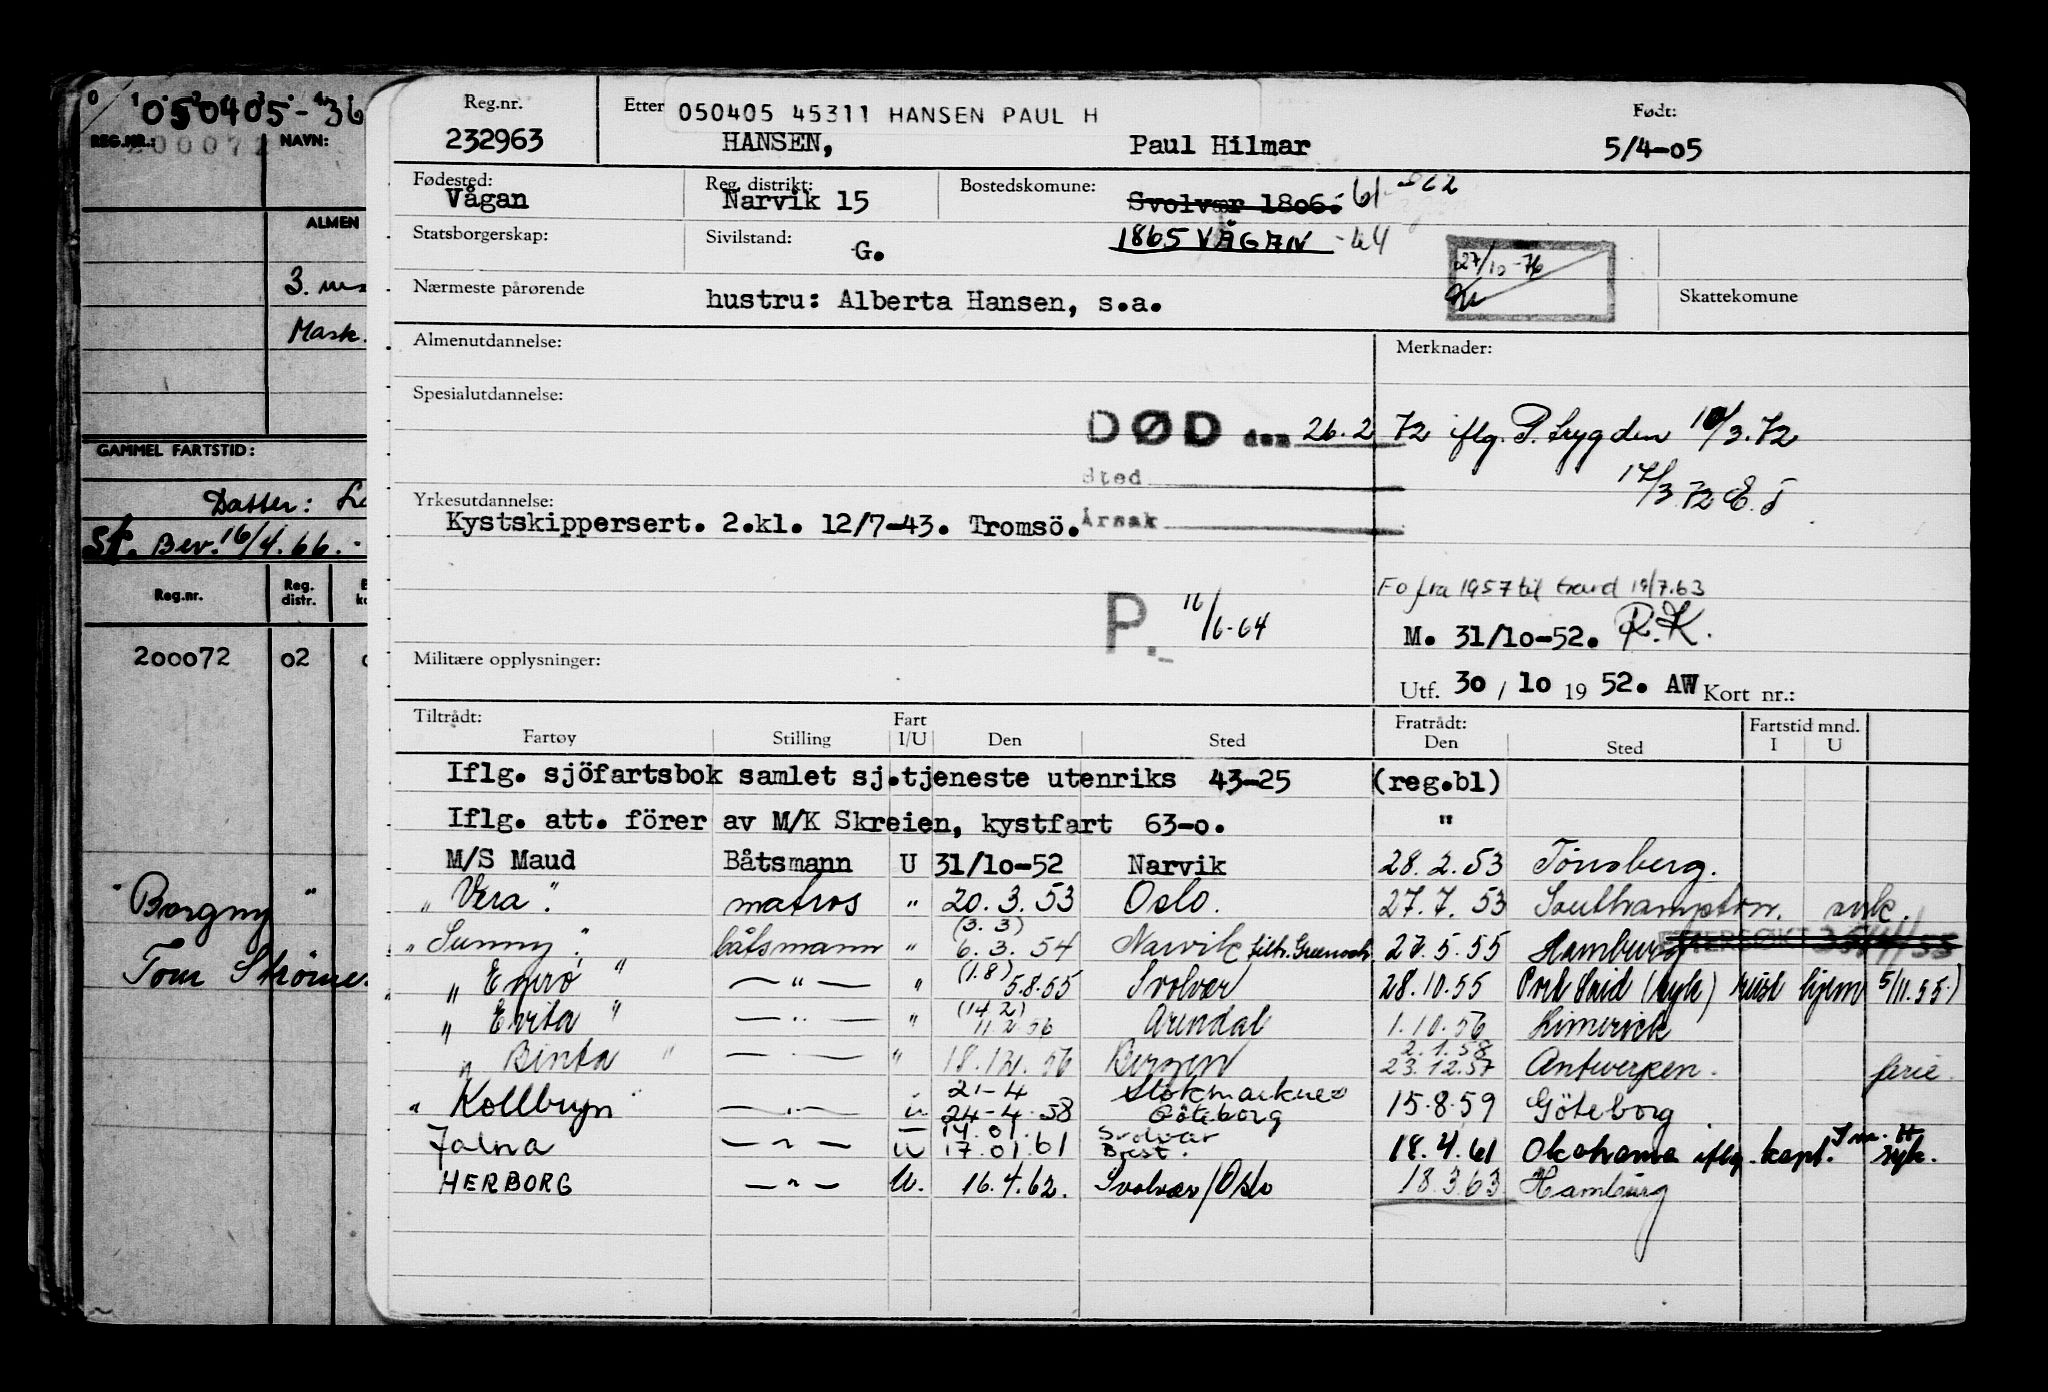 050405-36
REG.NR.: 200072 NAVN:
ALMEN
3.
Mask.
GAMMEL FARTSTID:
Datter:
St. Bev. 16/4.66.-
Reg.nr. Reg. distr.
200072 02
" Borgny "
Tom Strømer
Reg.nr. Etter 050405 45311 HANSEN PAUL H Født:
232963 HANSEN, Paul Hilmar 5/4-05
Fødested: Reg. distrikt: Bostedskomune:
Vågan Narvik 15 Svolvær 1806. 61
Statsborgerskap: Sivilstand: G. 1865 VÅGAN -64
27/10-76
Nærmeste pårørende hustru: Alberta Hansen, s.a. Skattekomune
Almenutdannelse: Merknader:
Spesialutdannelse:
DØD den 26.2 72 iflg. P. Trygden 10/3.72
Sted 17/3.72 E.J
Yrkesutdannelse:
Kystskippersert. 2.kl. 12/7-43. Tromsö. Årsak
Fo fra 1957 til 19/7.63
P. 16/6-64 M. 31/10-52. R.K.
Militære opplysninger:
Utf. 30 / 10 19 52. AW Kort nr.:
Tiltrådt: Fart Fratrådt: Fartstid mnd.
Fartøy Stilling I/U Den Sted Den Sted I U
Iflg. sjöfartsbok samlet sj.tjeneste utenriks 43-25 (reg.bl)
Iflg. att. förer av M/K Skreien, kystfart 63-0. "
M/S Maud Båtsmann U 31/10-52 Narvik 28.2.53 Tönsberg.
" Vera". matros " 20.3.53 Oslo. 27.7.53 Southampton. syk.
(3.3)
" Sunny". båtsmann " 6.3.54 Narvik tiltr. Greenock 27.5.55 Hamburg ETTERSØKT
" Egerö " — " — " (1.8) 5.8.55 Svolvær 28.10.55 Port Said (syk) reist hjem 5/11.55.)
" Evita " — " — " (14.2) 11.2.56 Arendal 1.10.56 Limerick
2.1.58
" Binta " — " — " 18.12.56 Bergen 23.12.57 Antwerpen. ferie.
21-4 Stokmarknes
" Kollbryn " — " — u 24-4.58 Göteborg 15.8.59 Göteborg
14.01. Svolvær
Jalna — " — u 17.01.61 Brest. 18.4.61 Okohama iflg. kapt. syk.
HERBORG — " — U. 16.4.62. Svolvær/Oslo 18.3.63 Hamburg